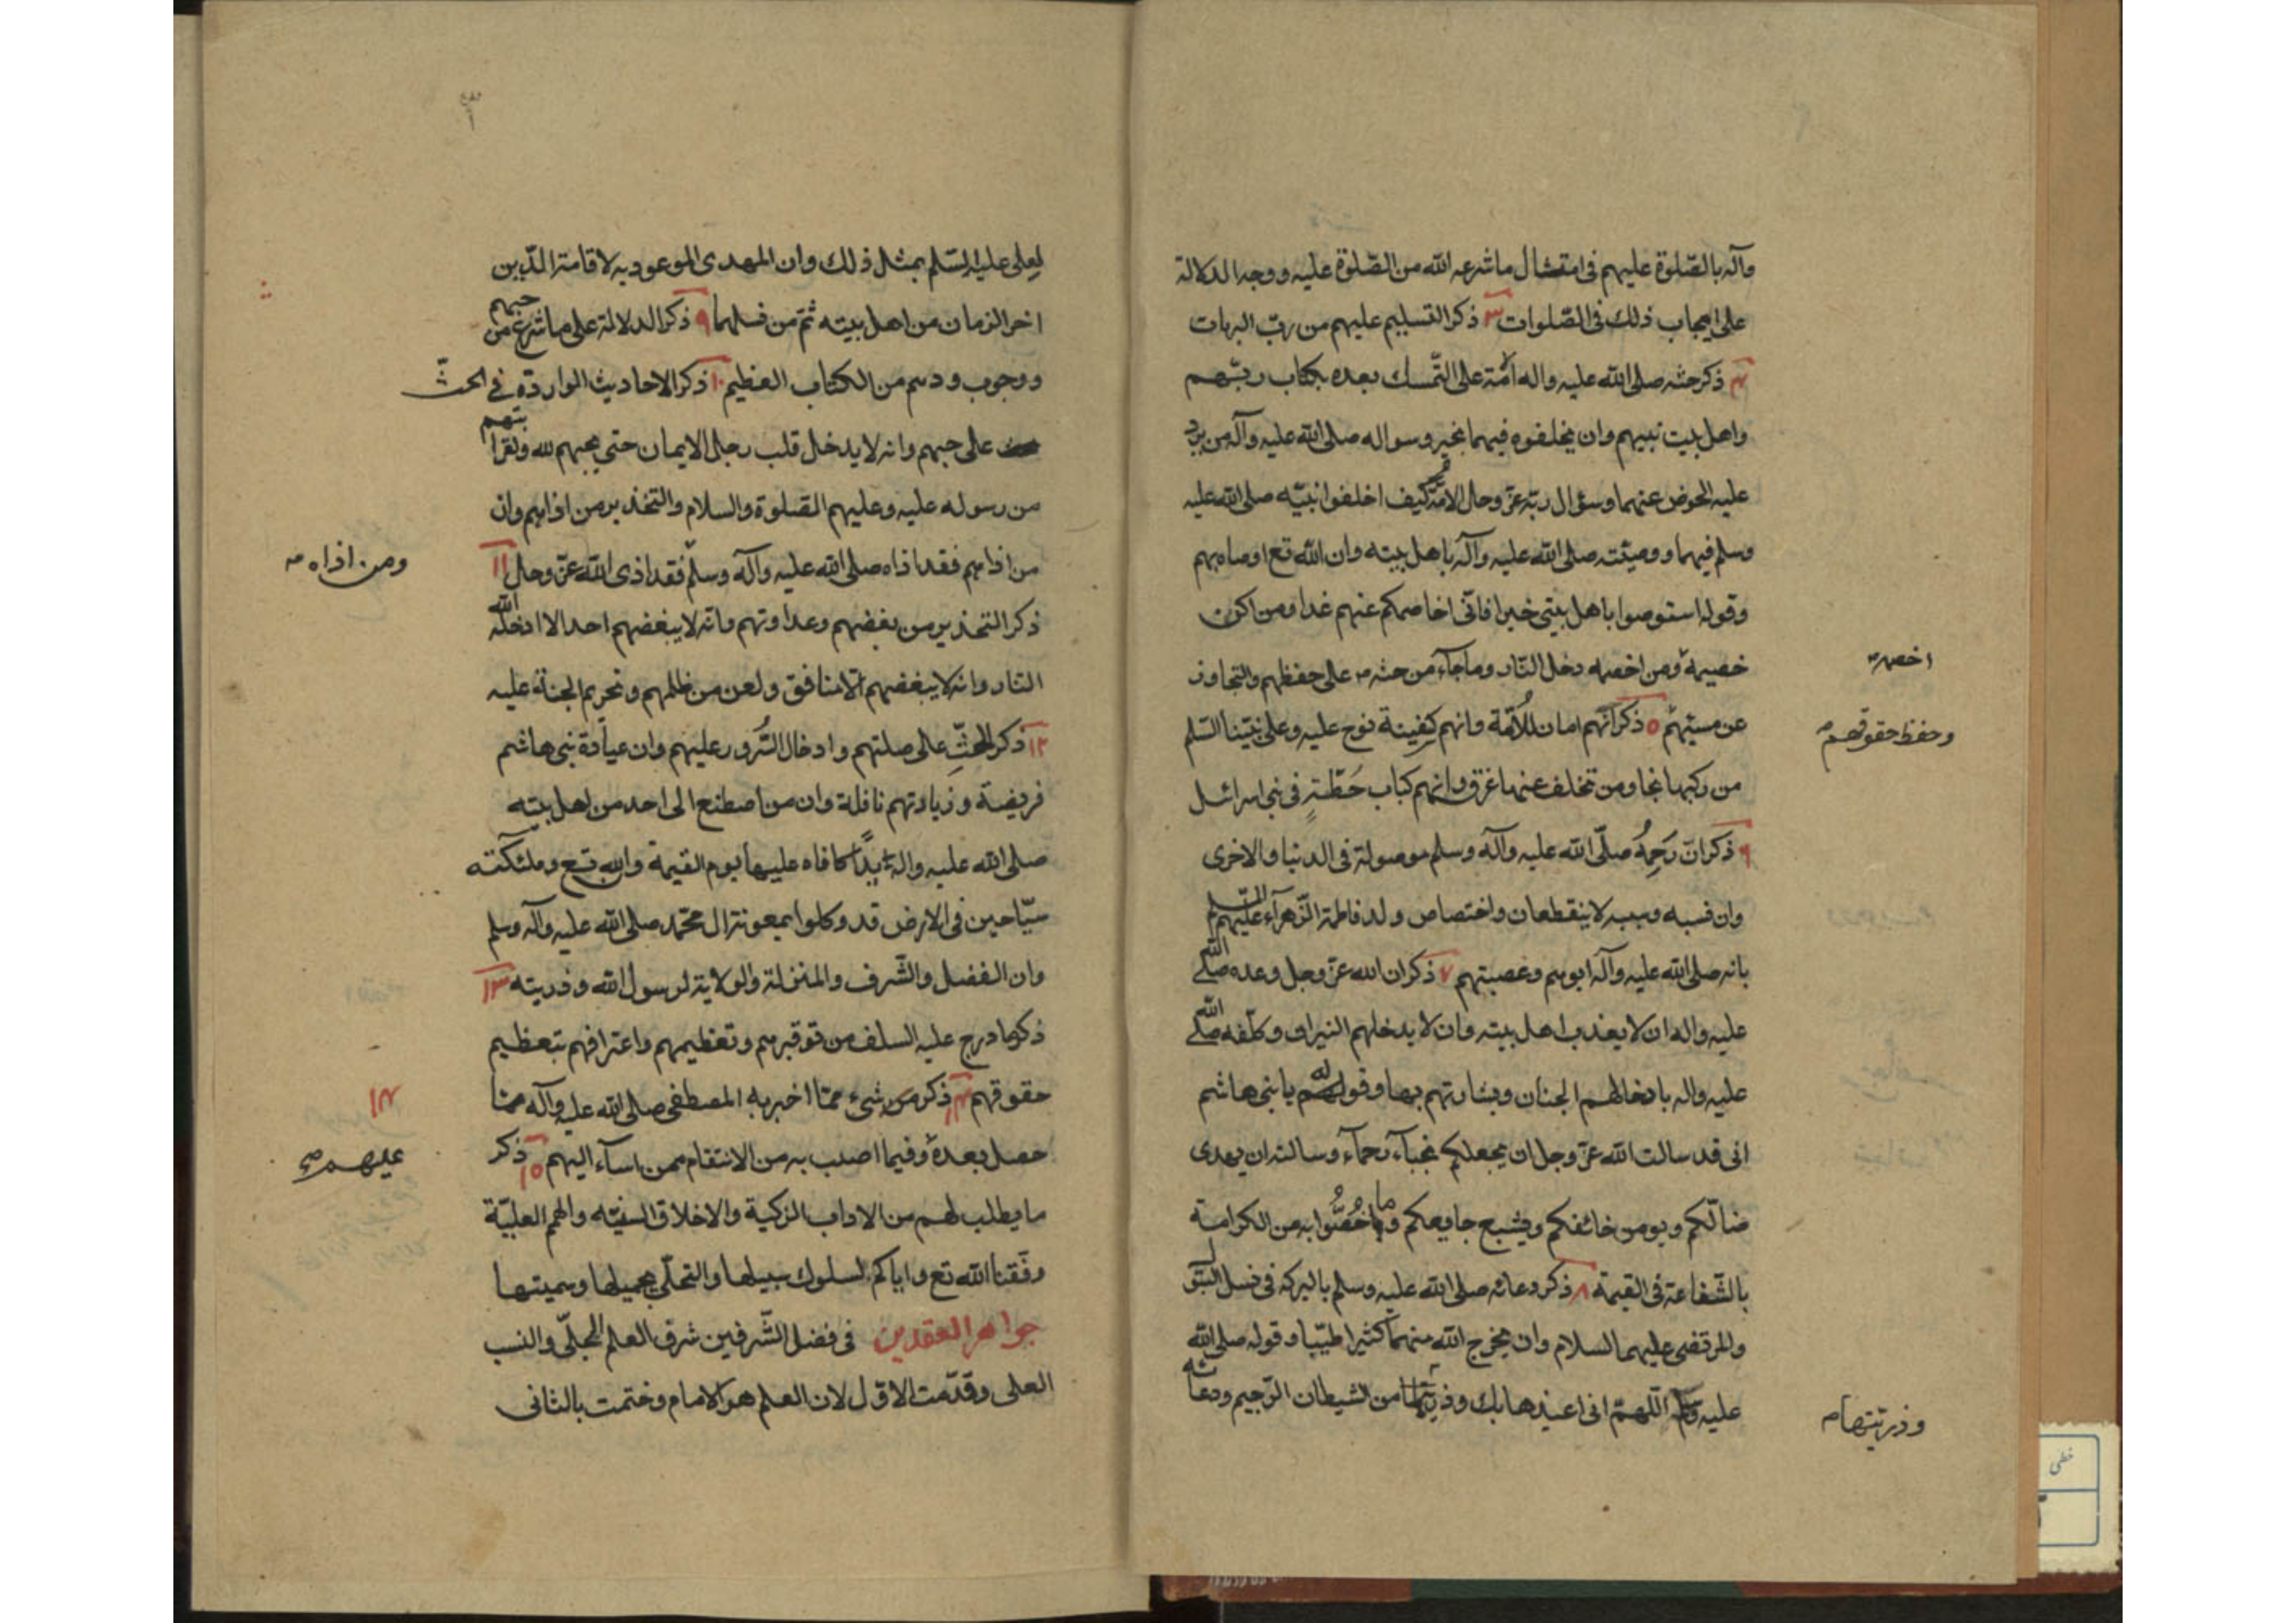 وآله بالصّلوة عليهم فى امتثال ما شرعه الله من الصّلوة عليه ووجه الدلالة
على ايجاب ذلك فى الصّلوات ٣ ذكر التسليم عليهم من ربّ البريات
٤ ذكر حثه صلى الله عليه واله الامّة على التّمسك بعده بكتاب ربّهم
واهل بيت نبيهم وان يخلفوه فيهما بخير وسواله صلى الله عليه وآله من يرد
عليه الحوض عنهما وسؤال ربّه عزّ وجل الامّة كيف اخلفوا نبيّه صلى الله عليه
وسلم فيهما ووصيّته صلى الله عليه وآله باهل بيته وان الله تع اوصاه بهم
وقوله استوصوا باهل بيتى خيرا فانّى اخاصمكم عنهم غدا ومن اكن
خصيمه ومن اخصمه دخل النّار وما جاء من حثه على حفظهم والتجاوز
اخصمه
عن مسيئهم ٥ ذكر انّهم امان للأمّة وانهم كسفينة نوح عليه وعلى نبيّنا السّلم
وحفظ حقوقهم
من ركبها نجا ومن تخلف عنها غرق وانهم كباب حَطّةٍ فى بنى اسرائل
٦ ذكر انّ رَحِمَهُ صلّى الله عليه وآله وسلم موصولة فى الدنيا والاخرى
وان نسبه وسببه لا ينقطعان واختصاص ولد فاطمة الزّهرآء عليهم السّلم
بانه صلى الله عليه وآله ابوهم وعصبتهم ٧ ذكر ان الله عزّ وجل وعده صلى الله
عليه واله ان لا يعذب اهل بيته وان لا يدخلهم النيران وكلّفه صلى الله
عليه واله بادخالهم الجنان وبشارتهم بها وقوله لهم يا بنى هاشم
انى قد سالت الله عزّ وجل ان يجعلكم نجبآء رحمآء وسالته ان يهدى
ضالّكم ويومن خائفكم ويشبع جايعكم وما خُصُّوا به من الكرامة
بالشّفاعة فى القيمة ٨ ذكر دعائه صلى الله عليه وسلم بالبركه فى نسل البتول
والمرتضى عليهما السلام وان يخرج الله منهما كثيرا طيّبا وقوله صلى الله
عليه وسلم اللّهمّ انى اعيذها بك وذريّتها من الشيطان الرّجيم ودعائه
وذريّتها
لعلى عليه السّلم بمثل ذلك وان المهدى الموعود به لاقامة الدّين
اخر الزمان من اهل بيته ثمّ من نسلهما ٩ ذكر الدلالة على ما شرع من حبهم
ووجوب ودهم من الكتاب العظيم ١٠ ذكر الاحاديث الواردة فى الحثّ
على حبهم وانه لا يدخل قلب رجل الايمان حتى يحبهم لله ولقرابتهم
من رسوله عليه وعليهم الصّلوة والسلام والتحذير من اذاهم وان
من اذاهم فقد اذاه صلى الله عليه وآله وسلّم فقد اذى الله عزّ وجل ١١
ومن اذاه
ذكر التحذير من بغضهم وعداوتهم وانّه لا يبغضهم احد الا ادخله الله
النار وانه لا يبغضهم الّا منافق ولعن من ظلمهم وتحريم الجنة عليه
١٢ ذكر الحثِّ على صلتهم وادخال السُّرور عليهم وان عيادة بنى هاشم
فريضة وزيارتهم نافلة وان من اصطنع الى احد من اهل بيته
صلى الله عليه واله يدًا كافاه عليها يوم القيمة وان لله تع وملئكته
سيّاحين فى الارض قد وكلوا بمعونة ال محمّد صلى الله عليه وآله وسلم
وان الفضل والشّرف والمنزلة والولاية لرسول الله وذريته ١٣
ذكر ما درج عليه السلف من توقيرهم وتعظيمهم واعترافهم بتعظيم
حقوقهم ١٤ ذكر من شىء ممّا اخبر به المصطفى صلى الله عليه وآله ممّا
١٤
حصل بعده وفيما اصيب به من الانتقام ممن اسآء اليهم ١٥ ذكر
عليهم
ما يطلب لهم من الاداب الزكية والاخلاق السنيّه والهمم العليّة
وفّقنا الله تع واياكم لسلوك سبيلها والتحلّى بجميلها وسميتها
جواهر العقدين فى فضل الشّرفين شرف العلم الجلّى والنسب
العلى وقدّمت الاوّل لان العلم هو الامام وختمت بالثانى
خطى